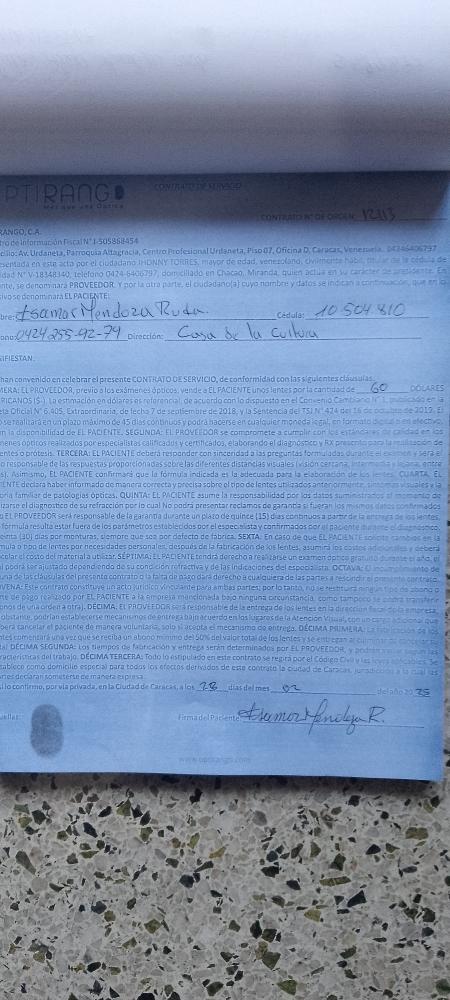 PTIRANGO
CONTRATO DE SERVICIO
CONTRATO N° DE ORDEN:
RANGO, C.A.
tro de información Fiscal N° J-505868454
cilio: Av. Urdaneta, Parroquia Altagracia, Centro Profesional Urdaneta, Piso 07, Oficina D, Caracas, Venezuela. 04246406797
esentada en este acto por el ciudadano JHONNY TORRES, mayor de edad, venezolano, civilmente hábil, titular de la cédula de
idad N° V-18348340, teléfono 0424-6406797, domiciliado en Chacao, Miranda, quien actúa en su carácter de presidente. En
nte, se denominará PROVEEDOR. Y por la otra parte, el ciudadano(a) cuyo nombre y datos se indican a continuación, que en lo
sivo se denominará EL PACIENTE:
bre: Isamar Mendoza Cédula: 10 504 810
ono: 0424 255-92-79 Dirección: Casa de la Cultura
IFIESTAN:
han convenido en celebrar el presente CONTRATO DE SERVICIO, de conformidad con las siguientes cláusulas:
MERA: EL PROVEEDOR, previo a los exámenes ópticos, vende a EL PACIENTE unos lentes por la cantidad de 60 DÓLARES
RICANOS ($-). La estimación en dólares es referencial, de acuerdo con lo dispuesto en el Convenio Cambiario N° 1, publicado en la
ta Oficial N° 6.405, Extraordinaria, de fecha 7 de septiembre de 2018, y la Sentencia del TSJ N° 424 del 16 de octubre de 2019. El
o se realizará en un plazo máximo de 45 días continuos y podrá hacerse en cualquier moneda legal, en formato digital o en efectivo
n la disponibilidad de EL PACIENTE. SEGUNDA: EL PROVEEDOR se compromete a cumplir con los estándares de calidad en los
menes ópticos realizados por especialistas calificados y certificados, elaborando el diagnóstico y RX presento para la realización de
entes o prótesis. TERCERA: EL PACIENTE deberá responder con sinceridad a las preguntas formuladas durante el examen y será el
o responsable de las respuestas proporcionadas sobre las diferentes distancias visuales (visión cercana, intermedia y lejana, entre
s). Asimismo, EL PACIENTE confirmará que la fórmula indicada es la adecuada para la elaboración de los lentes. CUARTA: EL
IENTE declara haber informado de manera correcta y precisa sobre el tipo de lentes utilizados anteriormente,
oria familiar de patologías ópticas. QUINTA: EL PACIENTE asume la responsabilidad por los datos suministrados al momento de
izarse el diagnóstico de su refracción por lo cual No podrá presentar reclamos de garantía si fueran los mismos datos confirmados
EL PROVEEDOR será responsable de la garantía durante un plazo de quince (15) días continuos a partir de la entrega de los lentes,
fórmula resulta estar fuera de los parámetros establecidos por el especialista y confirmados por el paciente durante el diagnóstico,
einta (30) días por monturas, siempre que sea por defecto de fábrica. SEXTA: En caso de que EL PACIENTE solicite cambios en la
mula o tipo de lentes por necesidades personales, después de la fabricación de los lentes, asumirá los costos adicionales y deberá
celar el costo del material a utilizar. SÉPTIMA: EL PACIENTE tendrá derecho a realizarse un examen óptico gratuito durante el año, el
l podrá ser ajustado dependiendo de su condición refractiva y de las indicaciones del especialista. OCTAVA: El incumplimiento de
una de las cláusulas del presente contrato o la falta de pago dará derecho a cualquiera de las partes a rescindir el presente contrato.
VENA: Este contrato constituye un acto jurídico vinculante para ambas partes; por lo tanto, no se restituirá ningún tipo de abono o
rte de pago realizado por EL PACIENTE a la empresa mencionada bajo ninguna circunstancia, como tampoco se podrá transferir
onos de una orden a otra). DÉCIMA: EL PROVEEDOR será responsable de la entrega de los lentes en la dirección fiscal de la empresa,
obstante, podrían establecerse mecanismos de entrega bajo acuerdo en los lugares de la Atención Visual, con un costo adicional que
erá cancelar el paciente de manera voluntaria, solo si acepta el mecanismo de entrega. DÉCIMA PRIMERA:
ntes comenzará una vez que se reciba un abono mínimo del 50% del valor total de los lentes y se entregan al
al. DÉCIMA SEGUNDA: Los tiempos de fabricación y entrega serán determinados por EL PROVEEDOR, y podrán
racterísticas del trabajo. DÉCIMA TERCERA: Todo lo estipulado en este contrato se regirá por el Código Civil y
tablece como domicilio especial para todos los efectos derivados de este contrato la ciudad de Caracas, jurisdicción a la cual las
artes declaran someterse de manera expresa.
sí lo confirmo, por vía privada, en la Ciudad de Caracas, a los 28 días del mes 02 del año 20 25
uellas: Firma del Paciente: Isamar Mendoza R.
www.optirango.com